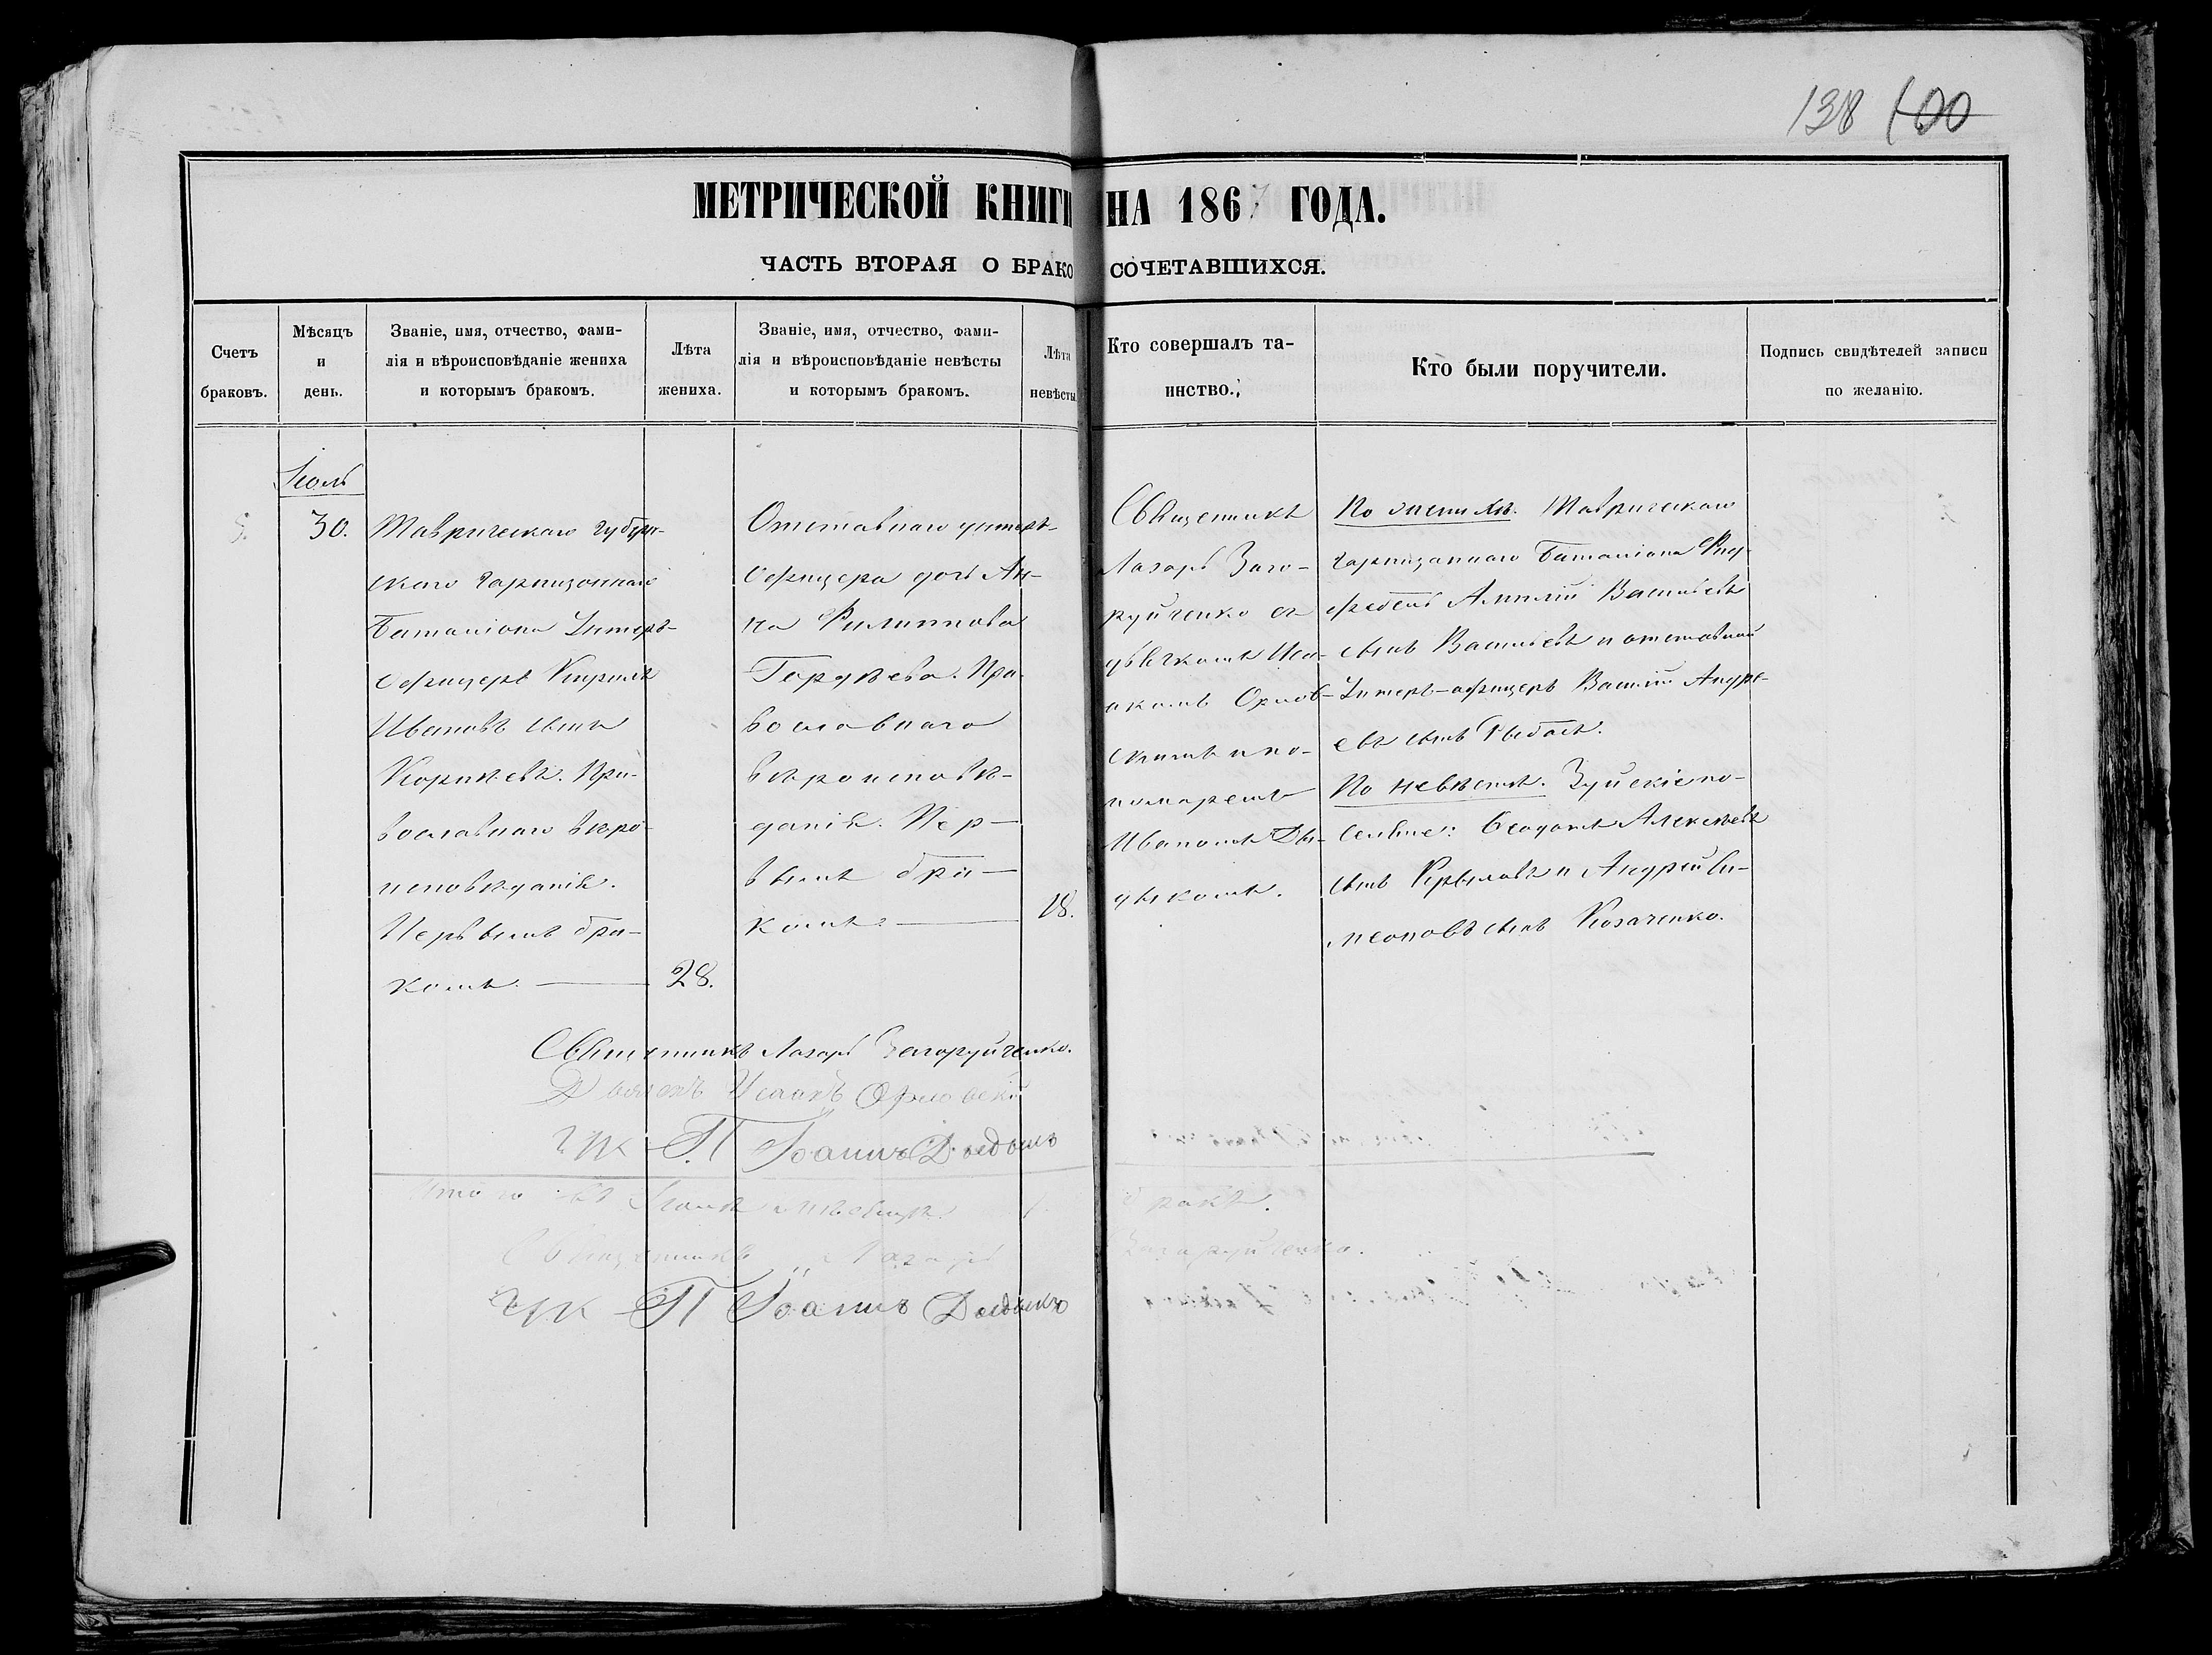 138 100
МЕТРИЧЕСКОЙ КНИГИ НА 1867 ГОДА.
ЧАСТЬ ВТОРАЯ О БРАКОСОЧЕТАВШИХСЯ.
Счетъ
браковъ.
Мѣсяцъ
и
день.
Званіе, имя, отчество, фами-
лія и вѣроисповѣданіе жениха
и которымъ бракомъ.
Лѣта
жениха.
Званіе, имя, отчество, фами-
лія и вѣроисповѣданіе невѣсты
и которымъ бракомъ.
Лѣта
невѣсты
Кто совершалъ та-
инство.
Кто были поручители.
Подпись свидѣтелей записи
по желанію.
5.
Іюль
30.
Таврическаго губерн-
скаго гарнизоннаго
Баталіона Унтеръ-
офицеръ Кирилъ
Ивановъ сынъ
Корнѣевъ. Пра-
вославнаго вѣро-
исповѣданія.
Первымъ бра-
комъ
28.
Отставнаго унтеръ-
офицера дочь Ан-
на Филиппова
Гордѣева. Пра-
вославнаго
вѣроисповѣ-
данія. Пер-
вымъ бра-
комъ
18.
Священникъ
Лазарь Заго-
руйченко съ
дьячкомъ Иса-
акомъ Орлов-
скимъ и по-
номаремъ
Иваномъ Ды-
дыкомъ.
По женихѣ. Таврическаго
гарнизоннаго Баталіона Фид-
фебель Васильевъ
сынъ Васильевъ и отставной
Унтеръ-офицеръ Василій Андре-
евъ сынъ
По невѣстѣ. Зуйскіе по-
селяне: Феодотъ Алексѣевъ
сынъ Крыловъ и Андрей Си-
меоновъ сынъ Козаченко.
Священникъ Лазарь Загоруйченко.
Дьячекъ Исаакъ Орловскій
П Іоаннъ Дыдыкъ
Итого въ Іюлѣ мѣсяцѣ 1 бракъ.
Священникъ Лазарь Загоруйченко.
П Іоаннъ Дыдыкъ